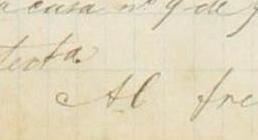 a casa nº 9 de
tecta.
Al fre